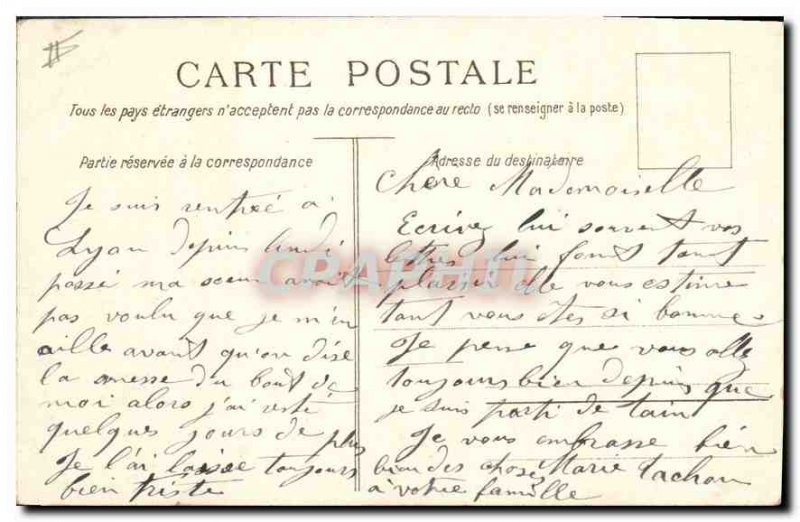 CARTE POSTALE
Tous les pays étrangers n'acceptent pas la correspondance au recto (se renseigner à la poste)
Partie réservée à la correspondance
Adresse du destinataire
Je suis rentrée a
Lyon depuis lundi
passé ma soeur avait
pas voulu que je m'en
aille avant qu'on dise
la messe du bout de
moi alors j'ai resté
quelques jours de plus
Je l'ai laissée toujours
bien triste
Chère Mademoiselle
Ecrivez lui souvent vos
lettres lui font tant
plaisir elle vous estime
tant vous êtes si bonne
Je pense que vous alle
toujours bien depuis que
je suis parti de Tain
Je vous embrasse bien
bien des choses Marie Tachon
à votre famille
CPAPHIL